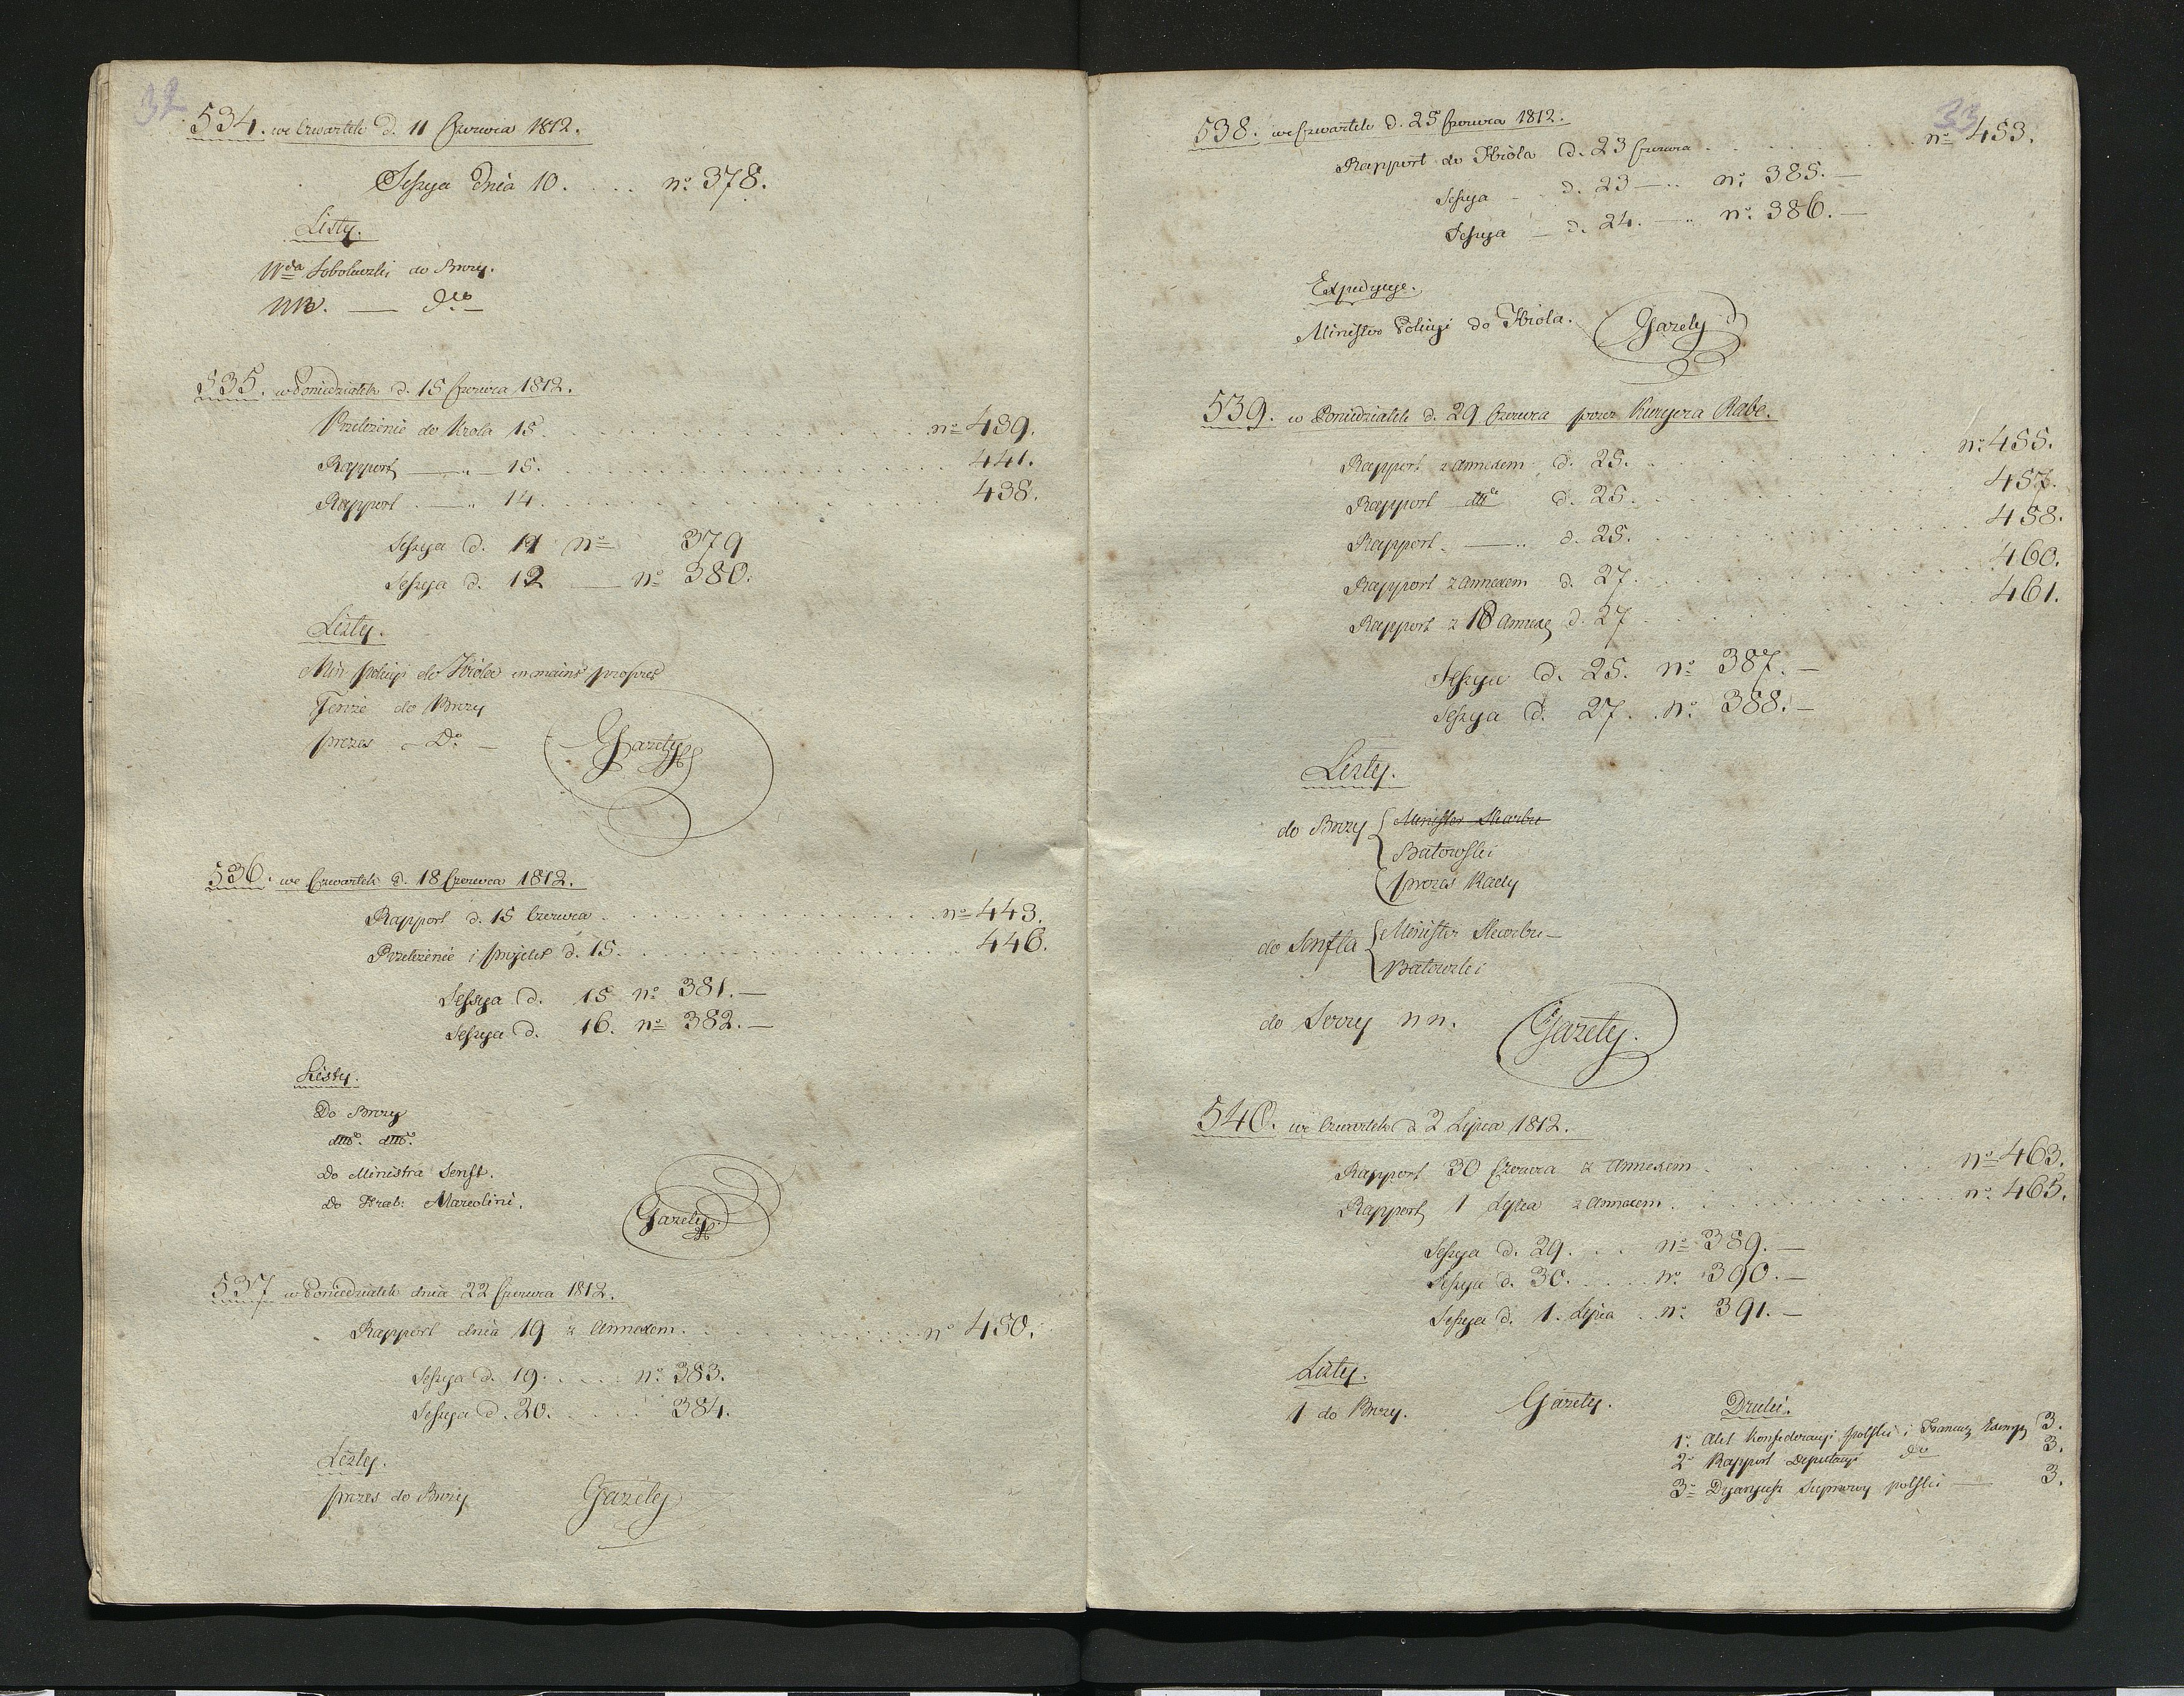 32
534. we Czwartek d. 11 Czerwca 1812.
Sessya dnia 10. . . . . no. 378.
Listy.
Wda Sobolewski do Brezy.
NB. — dto —
535. w Poniedziałek d. 15 Czerwca 1812.
Przełożenie do Króla 15. . . . . no 439.
Rapport —„— 15. . . . . 441.
Rapport . —„ 14. . . . . 438.
Sessya d. 11 no 379
Sessya d. 12 — no 380.
Listy.
Min policyi do Króla en mains propres
Tenże do Brezy
prezes — Do —
Gazety
536. we Czwartek d. 18 Czerwca 1812.
Rapport d. 15 Czerwca . . . . . no 443.
Przełożenie i projekt d. 15. . . . . 446.
Sessya d. 15 no 381. —
Sessya d. 16. no 382. —
Listy.
Do Brezy
dtto. dtto.
do Ministra Senft.
do Hrab: Marcolini.
Gazety
537 w Poniedziałek dnia 22 Czerwca 1812.
Rapport dnia 19 z annexem. . . . . no 450.
Sessya d. 19. . . . . no. 383.
Sessya d. 20. . . . . 384.
Listy.
prezes do Brezy
Gazety
33
538. we Czwartek d. 25 Czerwca 1812.
Rapport do Króla d. 23 Czerwca . . . . . no 453.
Sessya - d. 23 —„ no. 385. —
Sessya — d. 24. —„ no. 386. —
Expedycye.
Minister Policyi do Króla.
Gazety
539. w Poniedziałek d. 29 Czerwca przez Kuryera Rabe.
Rapport z annexem d. 25. . . . . no. 455.
Rapport dtto d. 25. . . . . 457.
Rapport. —„ d. 25. . . . . 458.
Rapport z annexem d. 27. . . . . 460.
Rapport z 18 annexa d. 27 . . . . 461.
Sessya d. 25. no. 387. —
Sessya d. 27. no. 388. —
Listy.
do Brezy { Minister Skarbu
Batowski
prezes Rady
do Senfta { Minister Skarbu —
Batowski
do Serry nn.
Gazety.
540. we Czwartek d 2 Lipca 1812.
Rapport 30 Czerwca z annexem . . . . . no 463.
Rapport 1 Lipca z annexem. . . . . no. 465.
Sessya d. 29. . . . no 389. —
Sessya d. 30. . . . . no. 390. —
Sessya d. 1. Lipca . no. 391. —
Listy.
1 do Brezy.
Gazety.
Druki.
1o. Akt Konfederacyi polski i Francuz Exemp 3.
2o Rapport Deputacyi do 3.
3o Dyaryusz Seymowy polski — 3.